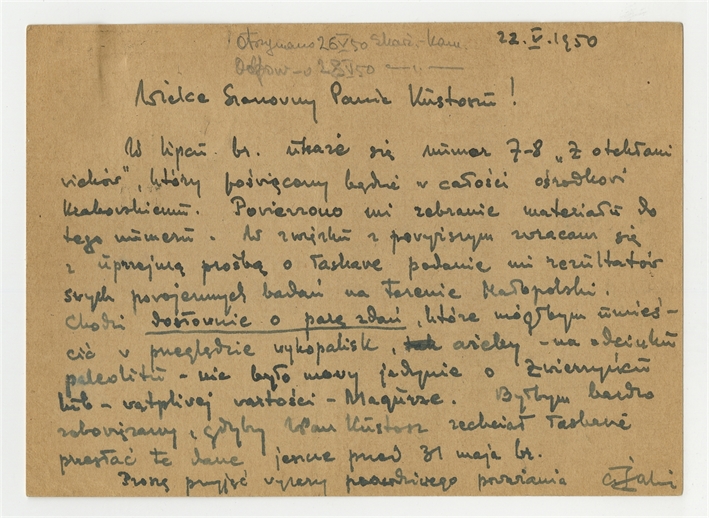 Otrzymano 26 V 50 Skarż.-Kam.
22. V. 1950
Odpow-o 28 V 50 — „ —
Wielce Szanowny Panie Kustoszu!
W lipcu br. ukaże się numer 7-8 „Z otchłani
wieków”, który poświęcony będzie w całości ośrodkowi
krakowskiemu. Powierzono mi zebranie materiału do
tego numeru. W związku z powyższym zwracam się
z uprzejmą prośbą o łaskawe podanie mi rezultatów
swych powojennych badań na terenie Małopolski.
Chodzi dosłownie o parę zdań, które mógłbym umieś-
cić w przeglądzie wykopalisk, ażeby - na odcinku
paleolitu - nie było mowy jedynie o Zwierzyńcu
lub - wątpliwej wartości - Magurze. Byłbym bardzo
zobowiązany, gdyby Pan Kustosz zechciał łaskawie
przesłać te dane jeszcze przed 31 maja br.
Proszę przyjąć wyrazy prawdziwego poważania